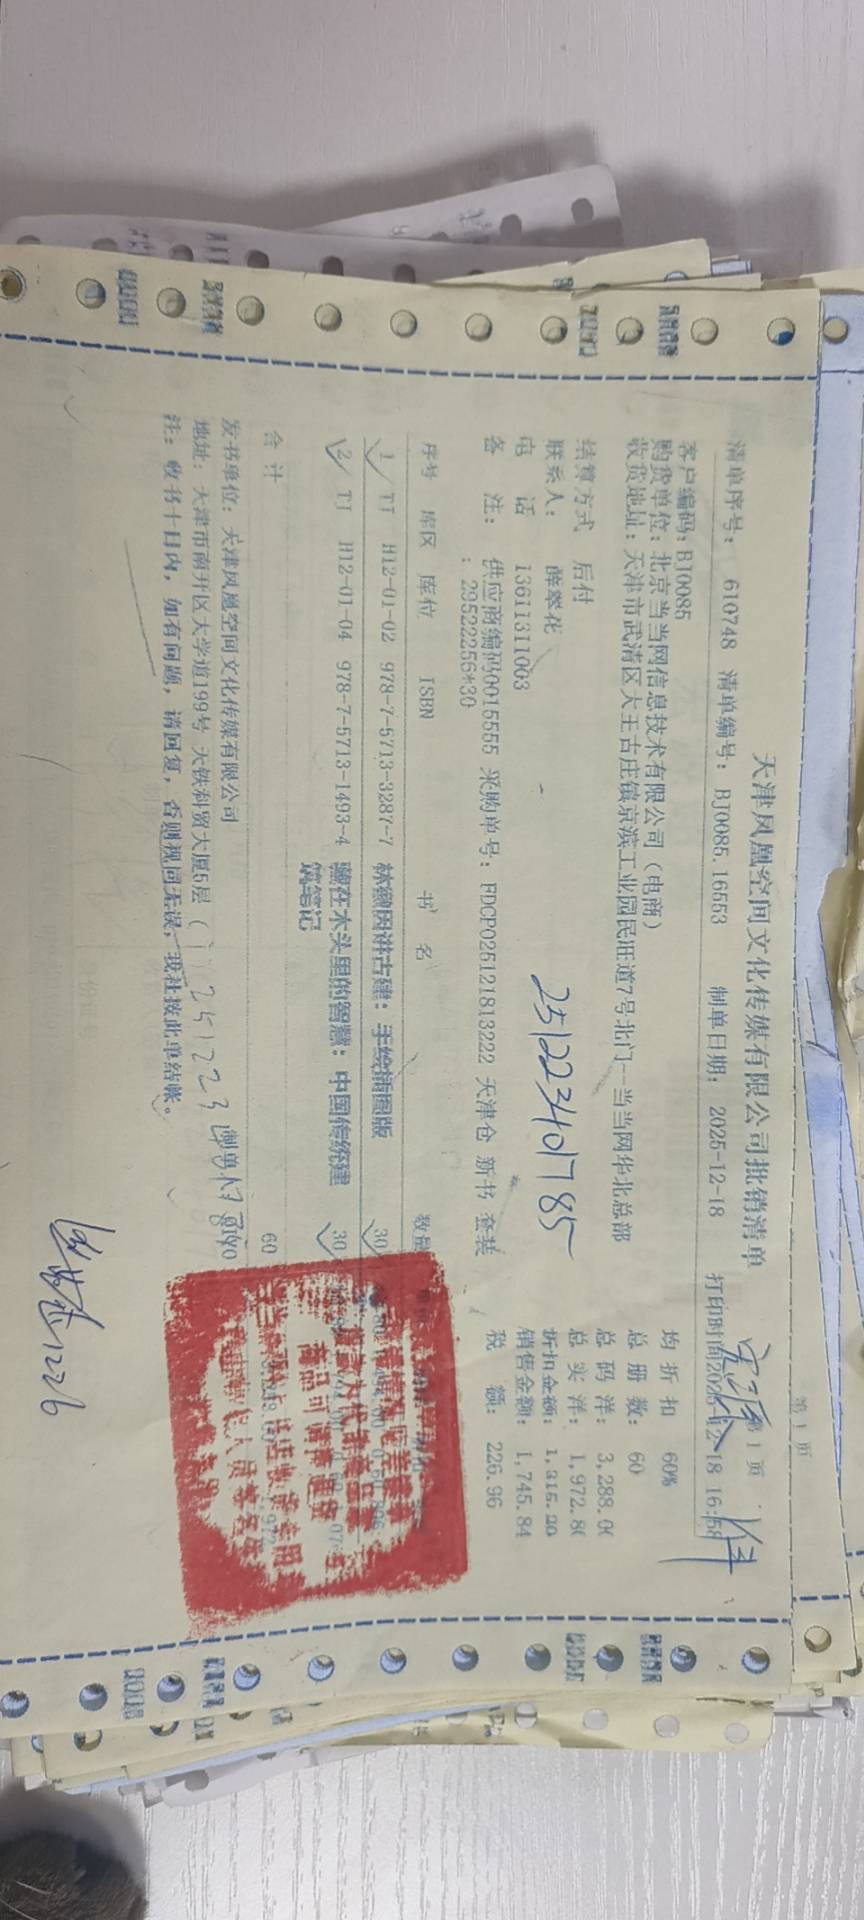 天津凤凰空间文化传媒有限公司批销清单
第1页
清单序号： 610748 清单编号： BJ0085.16553 制单日期： 2025-12-18 打印时间2025-12-18 16:58
客户编码：BJ0085
购货单位：北京当当网信息技术有限公司（电商）
收货地址：天津市武清区大王古庄镇京滨工业园民旺道7号北门--当当网华北总部
结算方式 后付
联系人： 薛翠花
电 话 13611311003
备 注： 供应商编码0015555 采购单号：FDCP025121813222 天津仓 新书 套装
：29522256*30
251223401785
均 折 扣 60%
总 册 数： 60
总 码 洋： 3,288.0
总 实 洋： 1,972.8
折扣金额： 1,315.20
销售金额： 1,745.84
税 额： 226.96
序号 库区 库位 ISBN 书 名 数量
1 TJ H12-01-02 978-7-5713-3287-7 林徽因讲古建：手绘插图版 30
2 TJ H12-01-04 978-7-5713-1493-4 藏在木头里的智慧：中国传统建 30
筑笔记
合 计 60
发书单位：天津凤凰空间文化传媒有限公司
地址：天津市南开区大学道199号 天铁科贸大厦5层
251223
注：收书十日内，如有问题，请回复，否则视同无误，我社按此单结帐。
1226
第1页